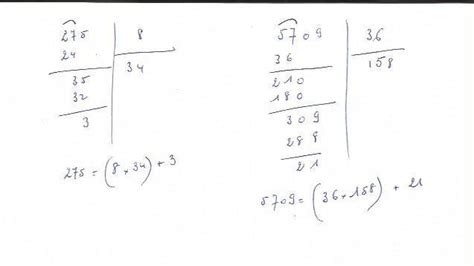 275 8
24 34
35
32
3
275 = (8 × 34) + 3
5709 36
36 158
210
180
309
288
21
5709 = (36 × 158) + 21